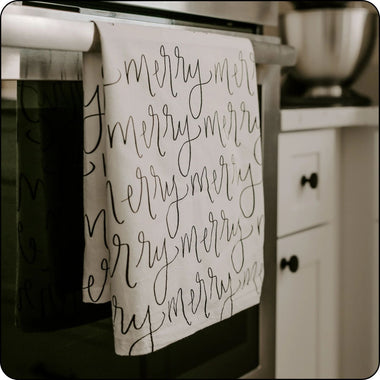 merry mer
merry merry
merry merry
merry merry
merry merry